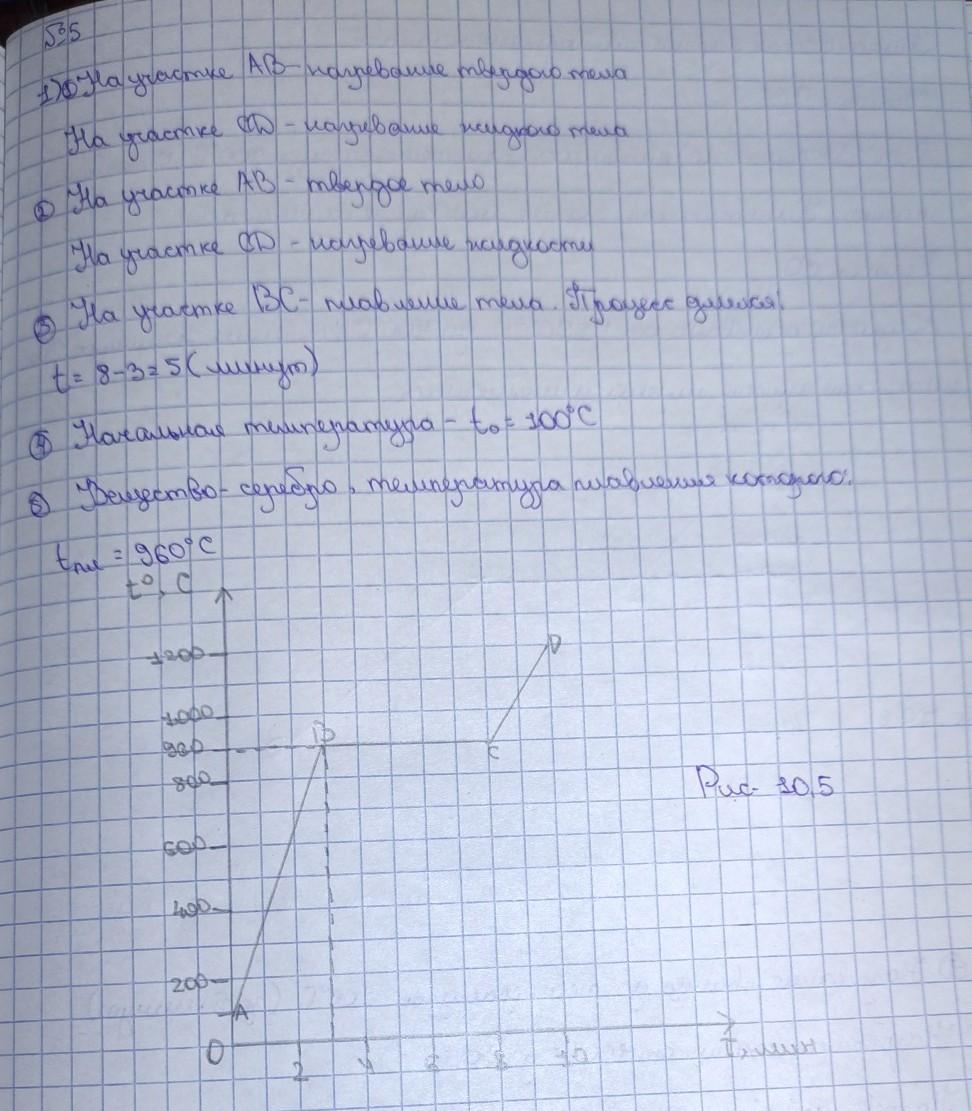 №5
1) ① На участке AB - нагревание твердого тела
На участке CD - нагревание жидкого тела
② На участке AB - твердое тело
На участке CD - нагревание жидкости
③ На участке BC - плавление тела. Процесс длился:
t = 8-3=5 (минут)
④ Начальная температура - t₀ = 100°C
⑤ Вещество - серебро, температура плавления которого:
tпл = 960°C
t°, C
1200
D
1000
B
960
C
800
Рис 10,5
600
400
200
A
0
2
4
6
8
10
t, мин